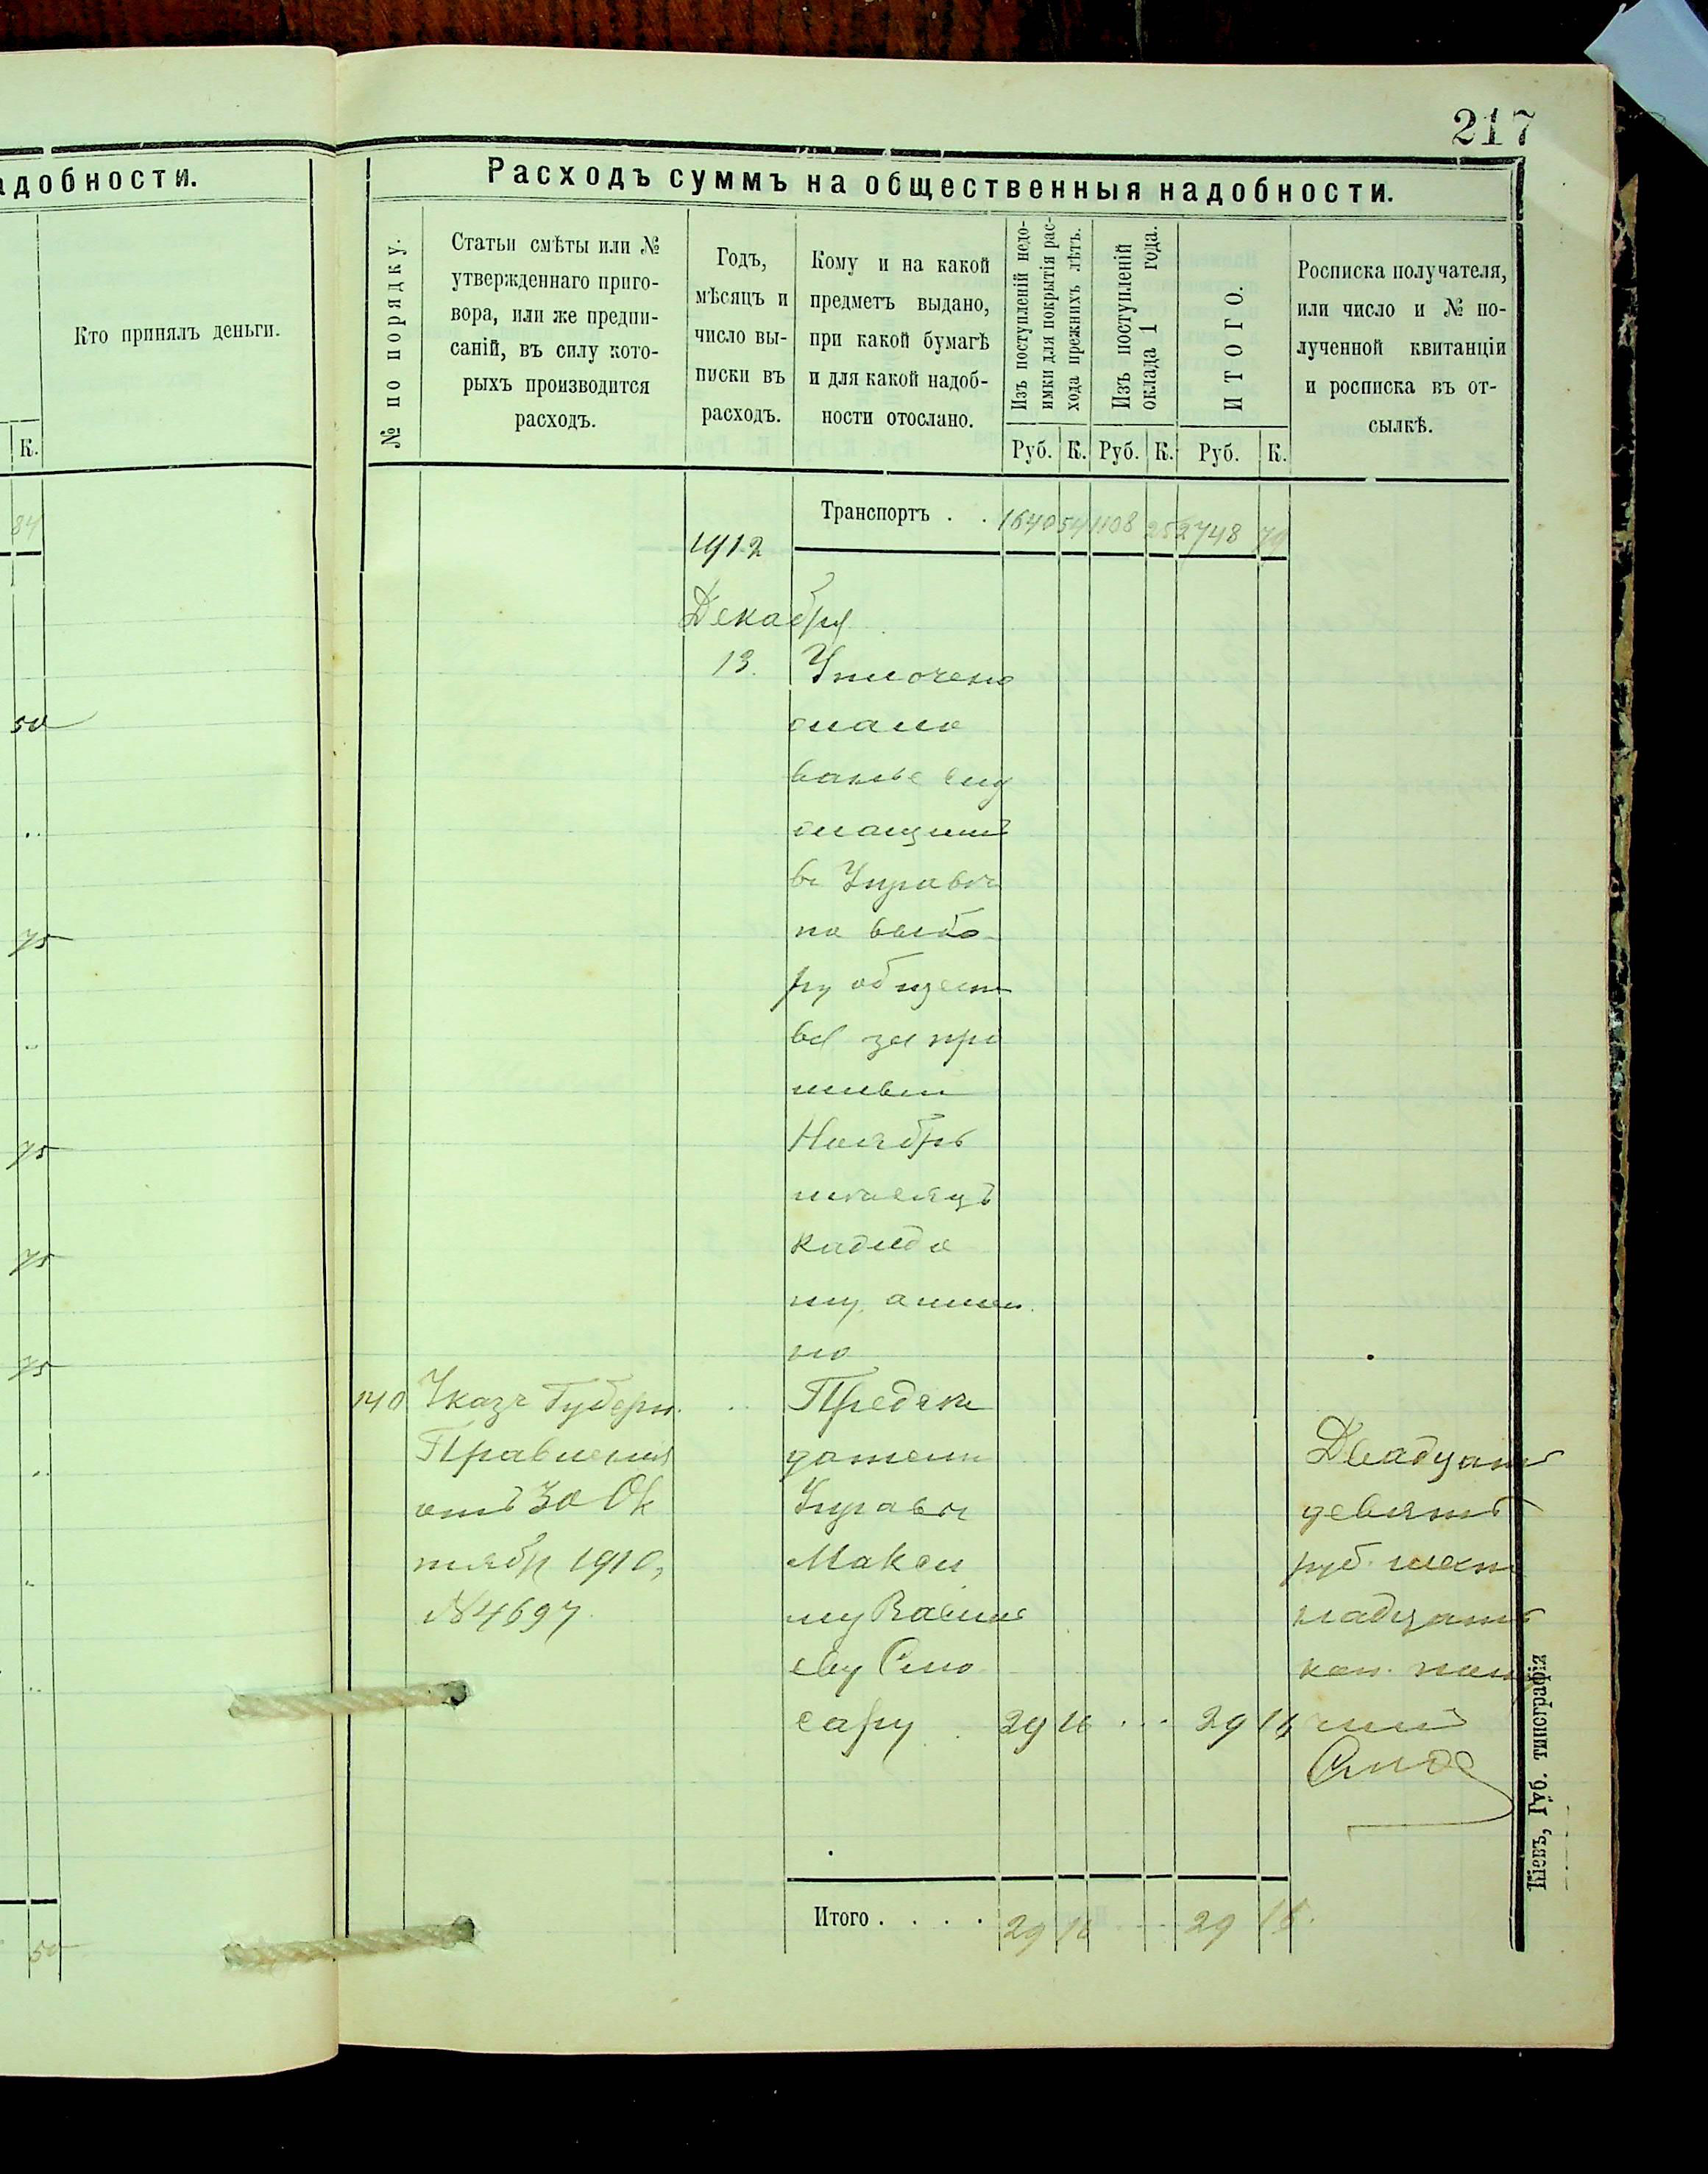 217
адобности.
К.
Кто принялъ деньги.
84
50
75
75
75
75
50
Расходъ суммъ на общественныя надобности.
№ по порядку.
Статьи смѣты или №
утвержденнаго приго-
вора, или же предпи-
саній, въ силу кото-
рыхъ производится
расходъ.
Годъ,
мѣсяцъ и
число вы-
писки въ
расходъ.
Кому и на какой
предметъ выдано,
при какой бумагѣ
и для какой надоб-
ности отослано.
Изъ поступленій недо-
имки для покрытія рас-
хода прежнихъ лѣтъ.
Изъ поступленій
оклада 1 года.
ИТОГО.
Росписка получателя,
или число и № по-
лученной квитанціи
и росписка въ от-
сылкѣ.
Руб. К. Руб. К. Руб. К.
Транспортъ . . 1640 54 1108 25 2748 79
1912
Декабря
13. Уплочено
жало
ванье слу
жащимъ
въ Управѣ
по выбо
ру общест
ва за
Ноябрь
мѣсяцъ
каждо
му
но
140 Указъ Губерн.
Правленія
отъ 30 Ок
тябр 1910,
№ 4697.
Предсѣ
дателю
Управы
Макси
му
еву Слю
сару . 29 16 . . . 29 16
Двадцать
девять
руб. шест
надцать
коп. полу
чилъ
Итого . . . . 29 16 29 16.
Кіевъ, Губ. типографія